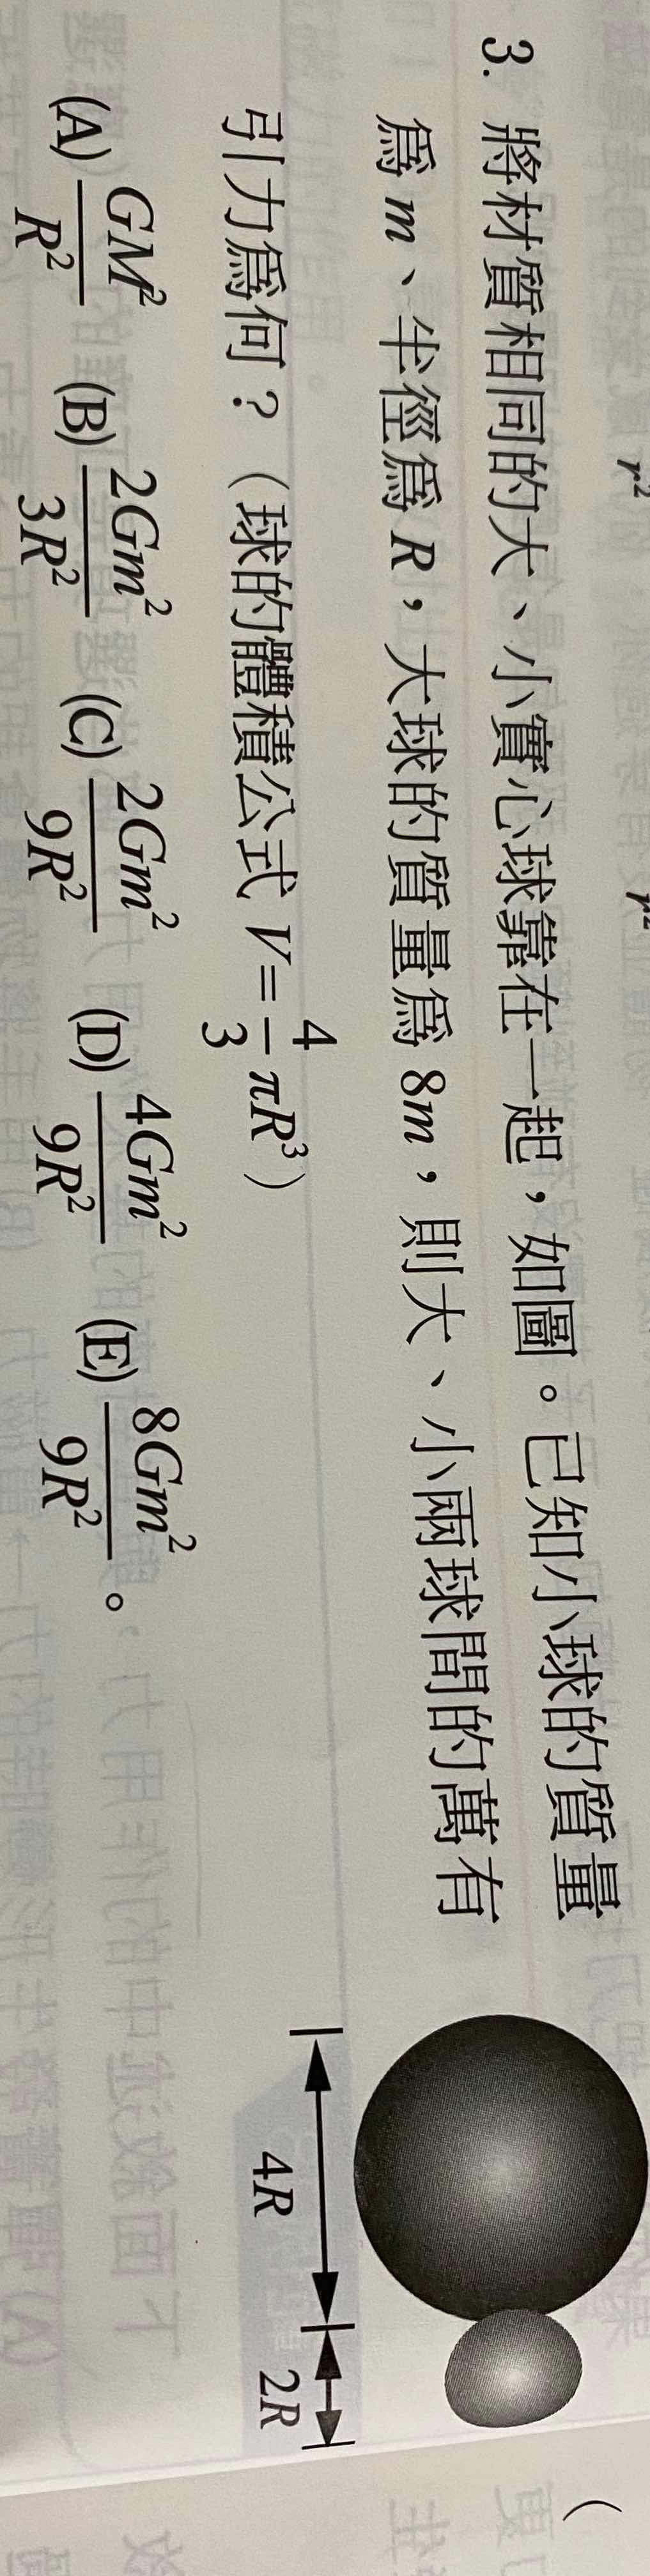 r²
r²
3. 將材質相同的大、小實心球靠在一起，如圖。已知小球的質量
為 m、半徑為 R，大球的質量為 8m，則大、小兩球間的萬有
引力為何？（球的體積公式 V=4/3 πR³）
(A) GM²/R² (B) 2Gm²/3R² (C) 2Gm²/9R² (D) 4Gm²/9R² (E) 8Gm²/9R² 。
4R
2R
(